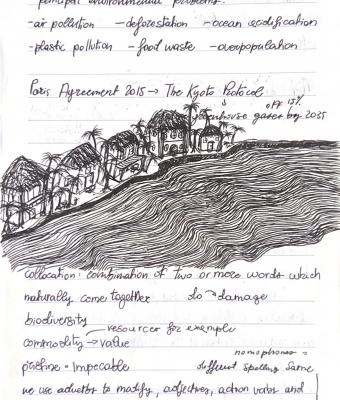 principal environmental problems:
-air pollution -deforestation -ocean acidification
-plastic pollution -food waste -overpopulation
Paris Agreement 2015 → The Kyoto Protocol
OFF 15%
greenhouse gases by 2035
collocation: combination of two or more words which
naturally come together do → damage
biodiversity
resources for example
commodity → value
homophones =
pristine = impecable different spelling same
we use adverbs to modify, adjectives, action verbs and